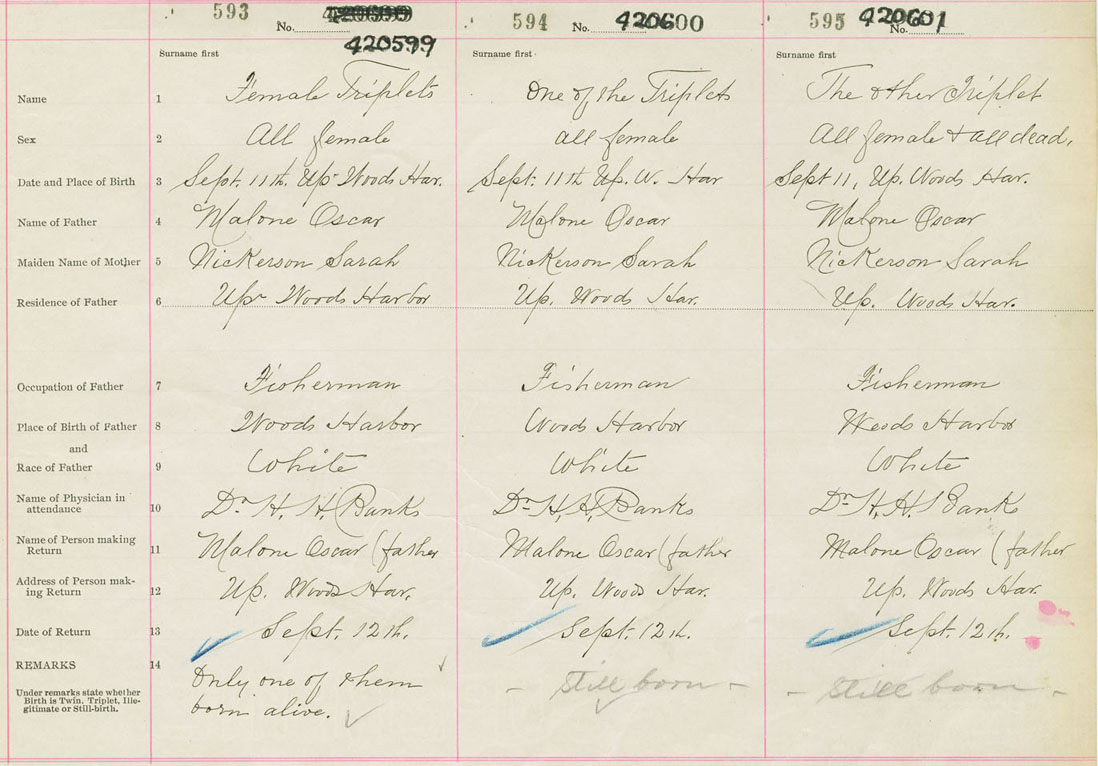 593 No. 420599 594 No. 420600 595 No. 420601
Surname first Surname first Surname first
Name 1 Female Triplets One of the Triplets The other Triplet
Sex 2 All female all female All female & all dead.
Date and Place of Birth 3 Sept. 11th. Upr Woods Har. Sept. 11th Up. W. Har Sept 11, Up. Woods Har.
Name of Father 4 Malone Oscar Malone Oscar Malone Oscar
Maiden Name of Mother 5 Nickerson Sarah Nickerson Sarah Nickerson Sarah
Residence of Father 6 Upr Woods Harbor Up. Woods Har. Up. Woods Har.
Occupation of Father 7 Fisherman Fisherman Fisherman
Place of Birth of Father 8 Woods Harbor Woods Harbor Woods Harbor
and
Race of Father 9 White White White
Name of Physician in
attendance 10 Dr H. H. Banks Dr H. H. Banks Dr H. H. Banks
Name of Person making
Return 11 Malone Oscar (father Malone Oscar (father Malone Oscar (father
Address of Person mak-
ing Return 12 Up. Woods Har. Up. Woods Har. Up. Woods Har.
Date of Return 13 Sept. 12th. Sept. 12th. Sept. 12th.
REMARKS 14 Only one of them - still born - - still born -
born alive.
Under remarks state whether
Birth is Twin, Triplet, Ille-
gitimate or Still-birth.